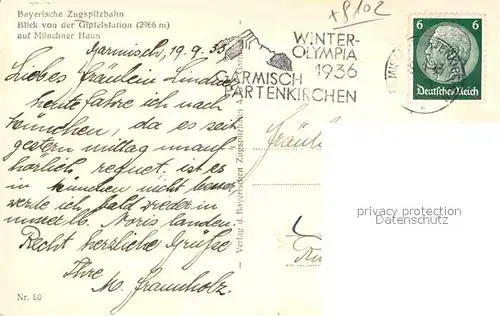 Bayerische Zugspitzbahn
Blick von der Gipfelstation (2966 m)
auf Münchner Haus
+8102
Garmisch, 19.9.35
Liebes Fräulein Lindner
heute fahre ich nach
München, da es seit
gestern mittag unauf
hörlich regnet, ist es
in München nicht besser,
werde ich bald wieder in
unser lb. Noris landen.
Recht herzliche Grüße
Ihre
M. Fraunholz.
Nr. 80
Verlag d. Bayerischen Zugspitzbahn A.
WINTER-
OLYMPIA
1936
GARMISCH
PARTENKIRCHEN
6 6
Deutsches Reich
Fräul
privacy protection
Datenschutz